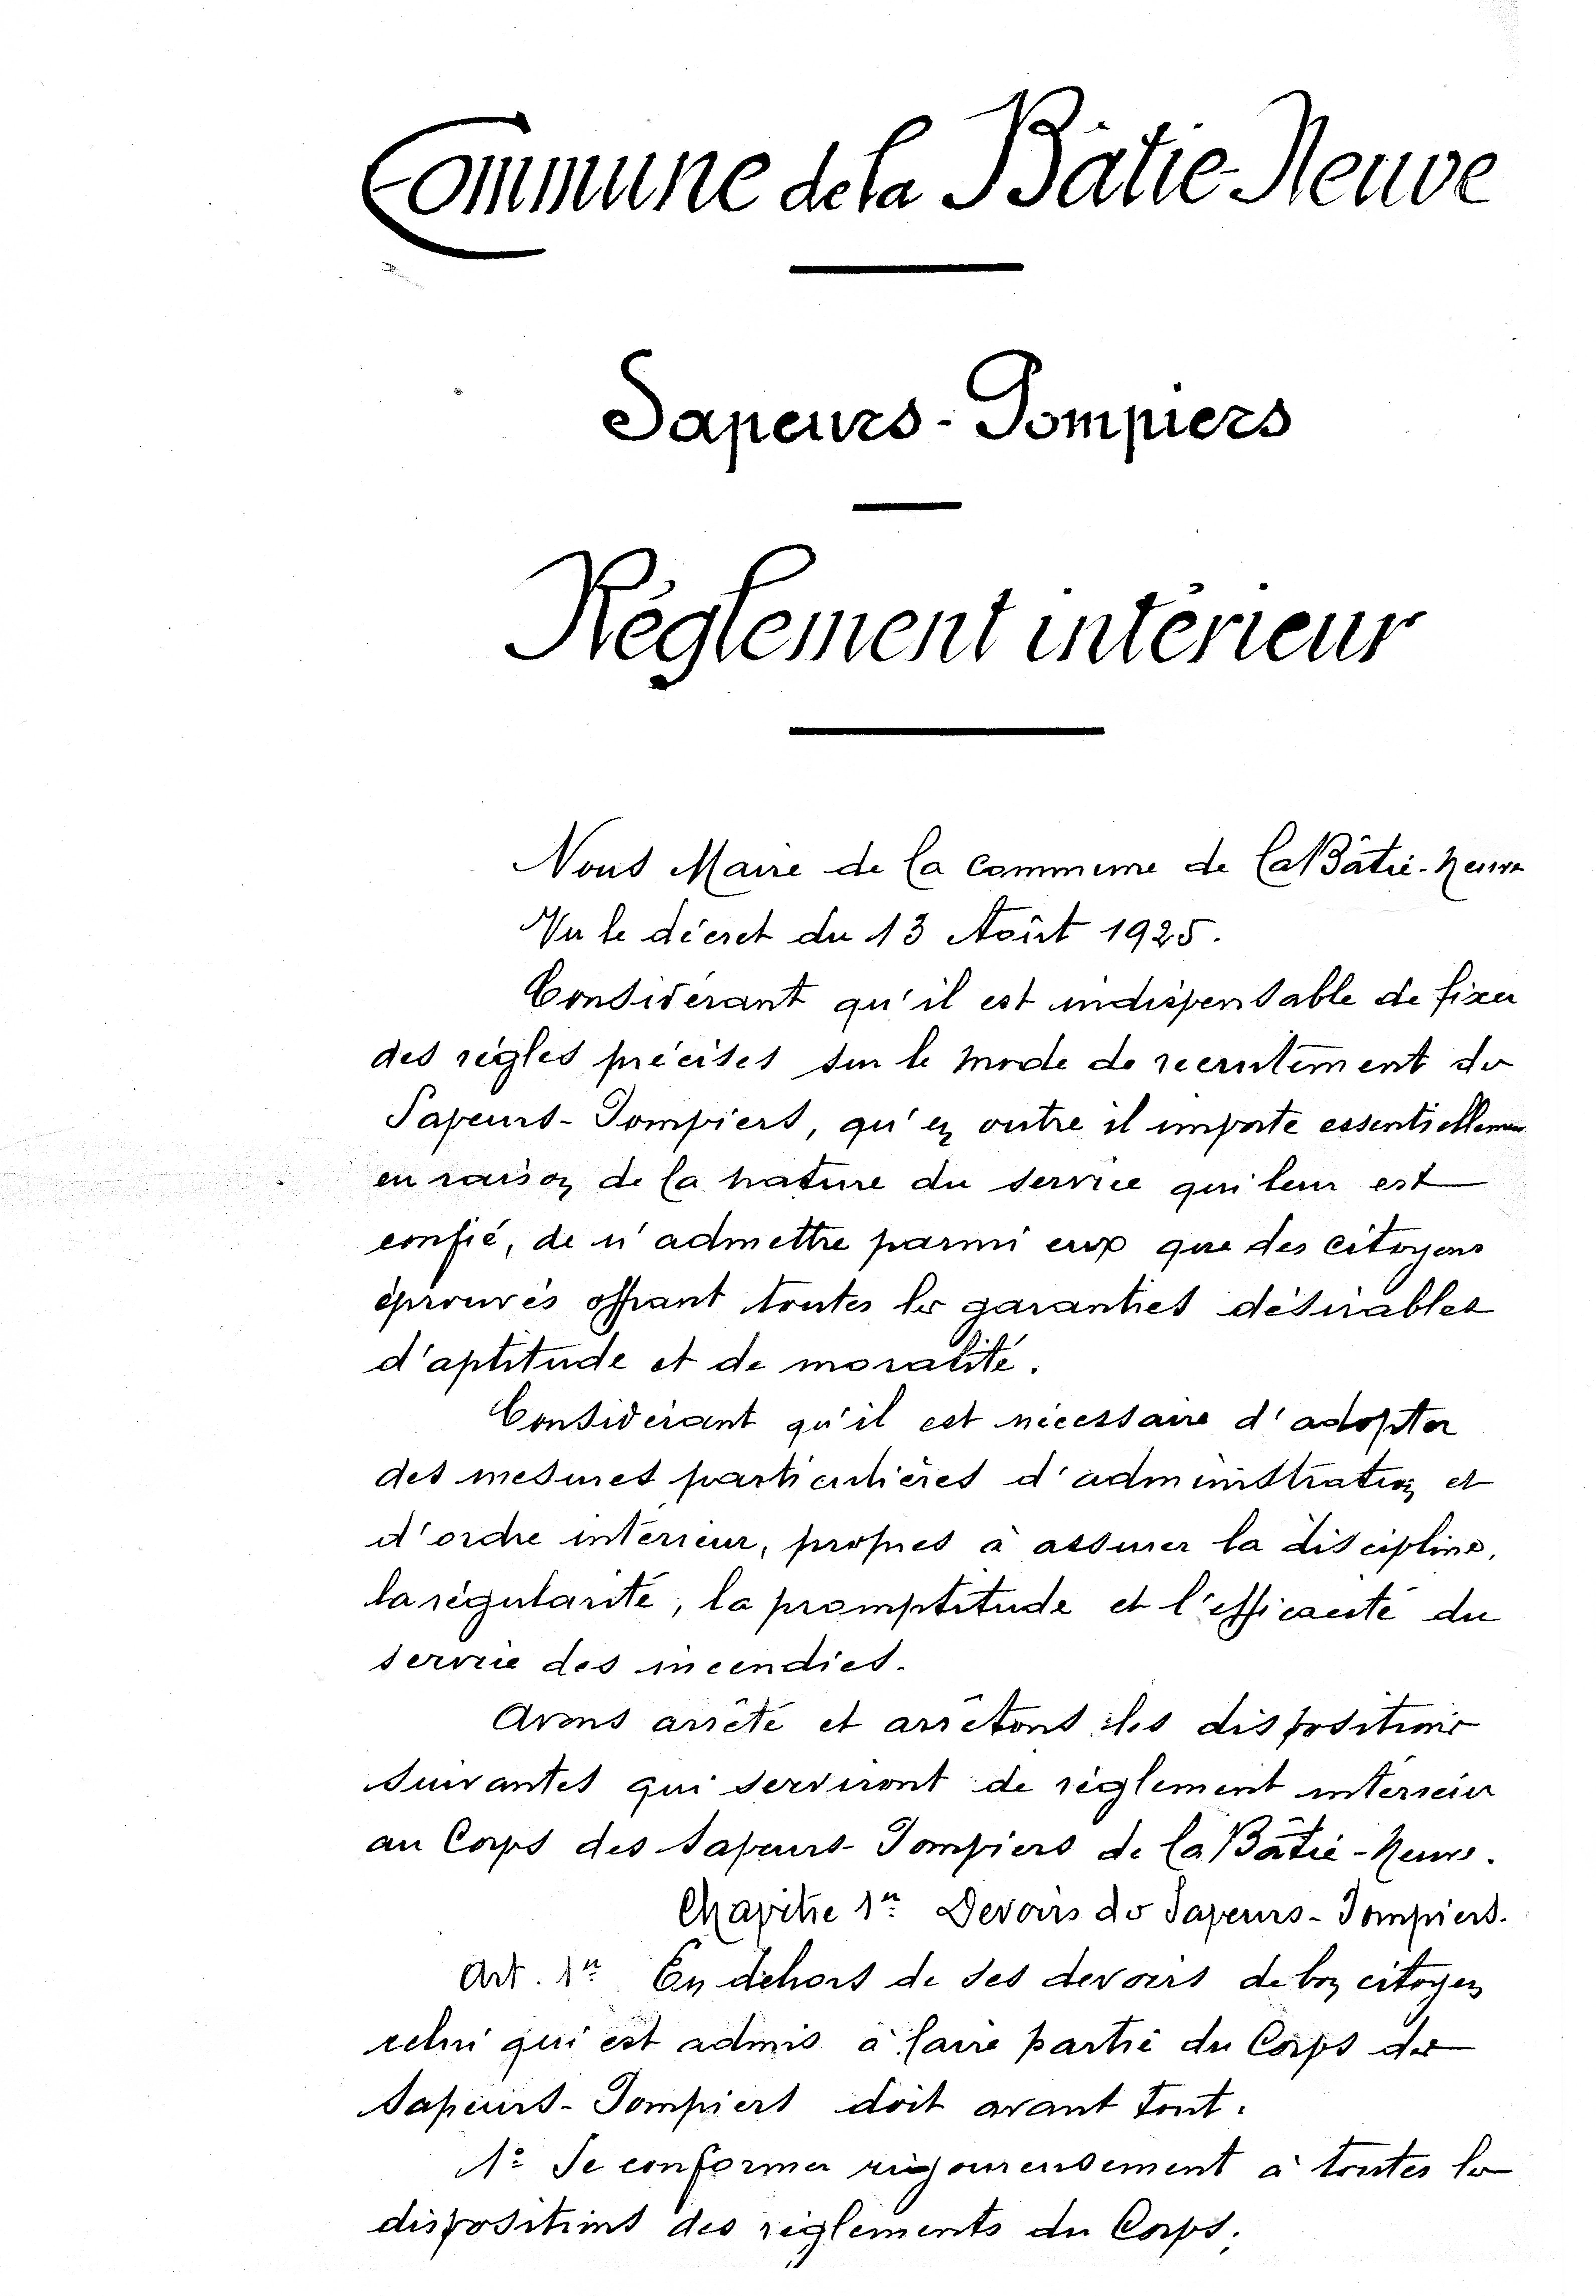 Commune de la Bâtie-Neuve
Sapeurs-Pompiers
Règlement intérieur
Nous Maire de la commune de la Bâtie-Neuve
Vu le décret du 13 Août 1925.
Considérant qu'il est indispensable de fixer
des règles précises sur le mode de recrutement des
Sapeurs-Pompiers, qu'en outre il importe essentiellement
en raison de la nature du service qui leur est
confié, de n'admettre parmi eux que des citoyens
éprouvés offrant toutes les garanties désirables
d'aptitude et de moralité.
Considérant qu'il est nécessaire d'adopter
des mesures particulières d'administration et
d'ordre intérieur, propres à assurer la discipline,
la régularité, la promptitude et l'efficacité du
service des incendies.
Avons arrêté et arrêtons les dispositions
suivantes qui serviront de règlement intérieur
au Corps des Sapeurs-Pompiers de la Bâtie-Neuve.
Chapitre 1er Devoirs des Sapeurs-Pompiers.
Art. 1er En dehors de ses devoirs de bon citoyen
celui qui est admis à faire partie du Corps des
Sapeurs-Pompiers doit avant tout.
1° Se conformer rigoureusement à toutes les
dispositions des règlements du Corps;